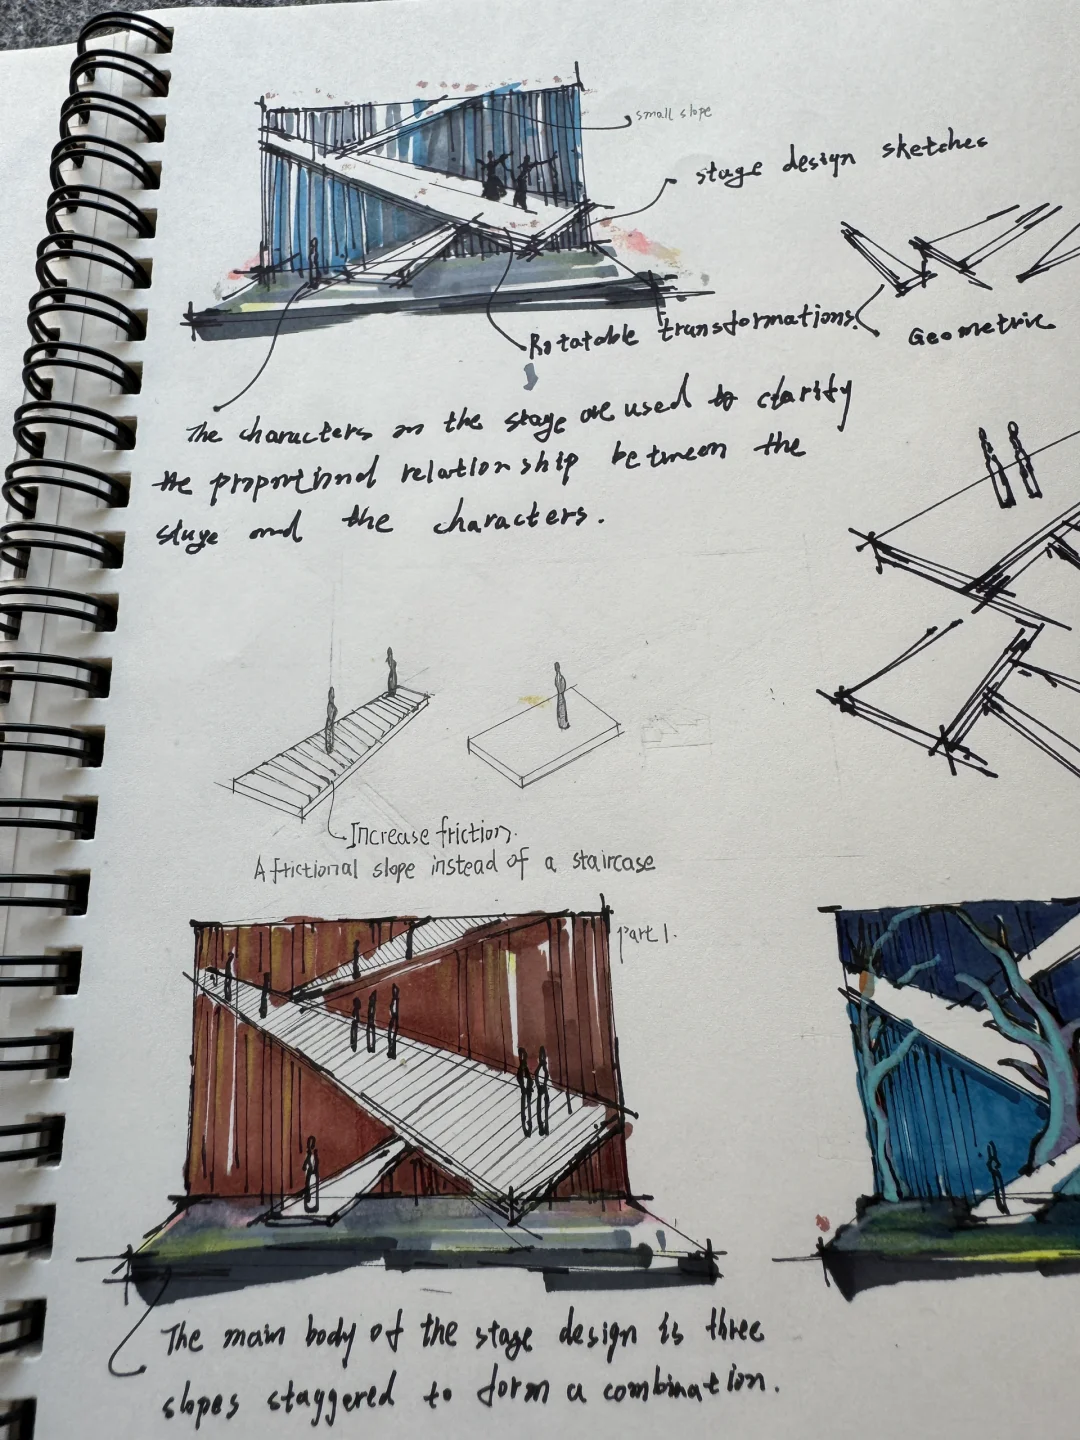 small slope
stage design sketches
Rotatable transformations.
Geometric
The characters on the stage are used to clarify
the proportional relationship between the
stage and the characters.
Increase friction.
A frictional slope instead of a staircase
part 1.
The main body of the stage design is three
slopes staggered to form a combination.